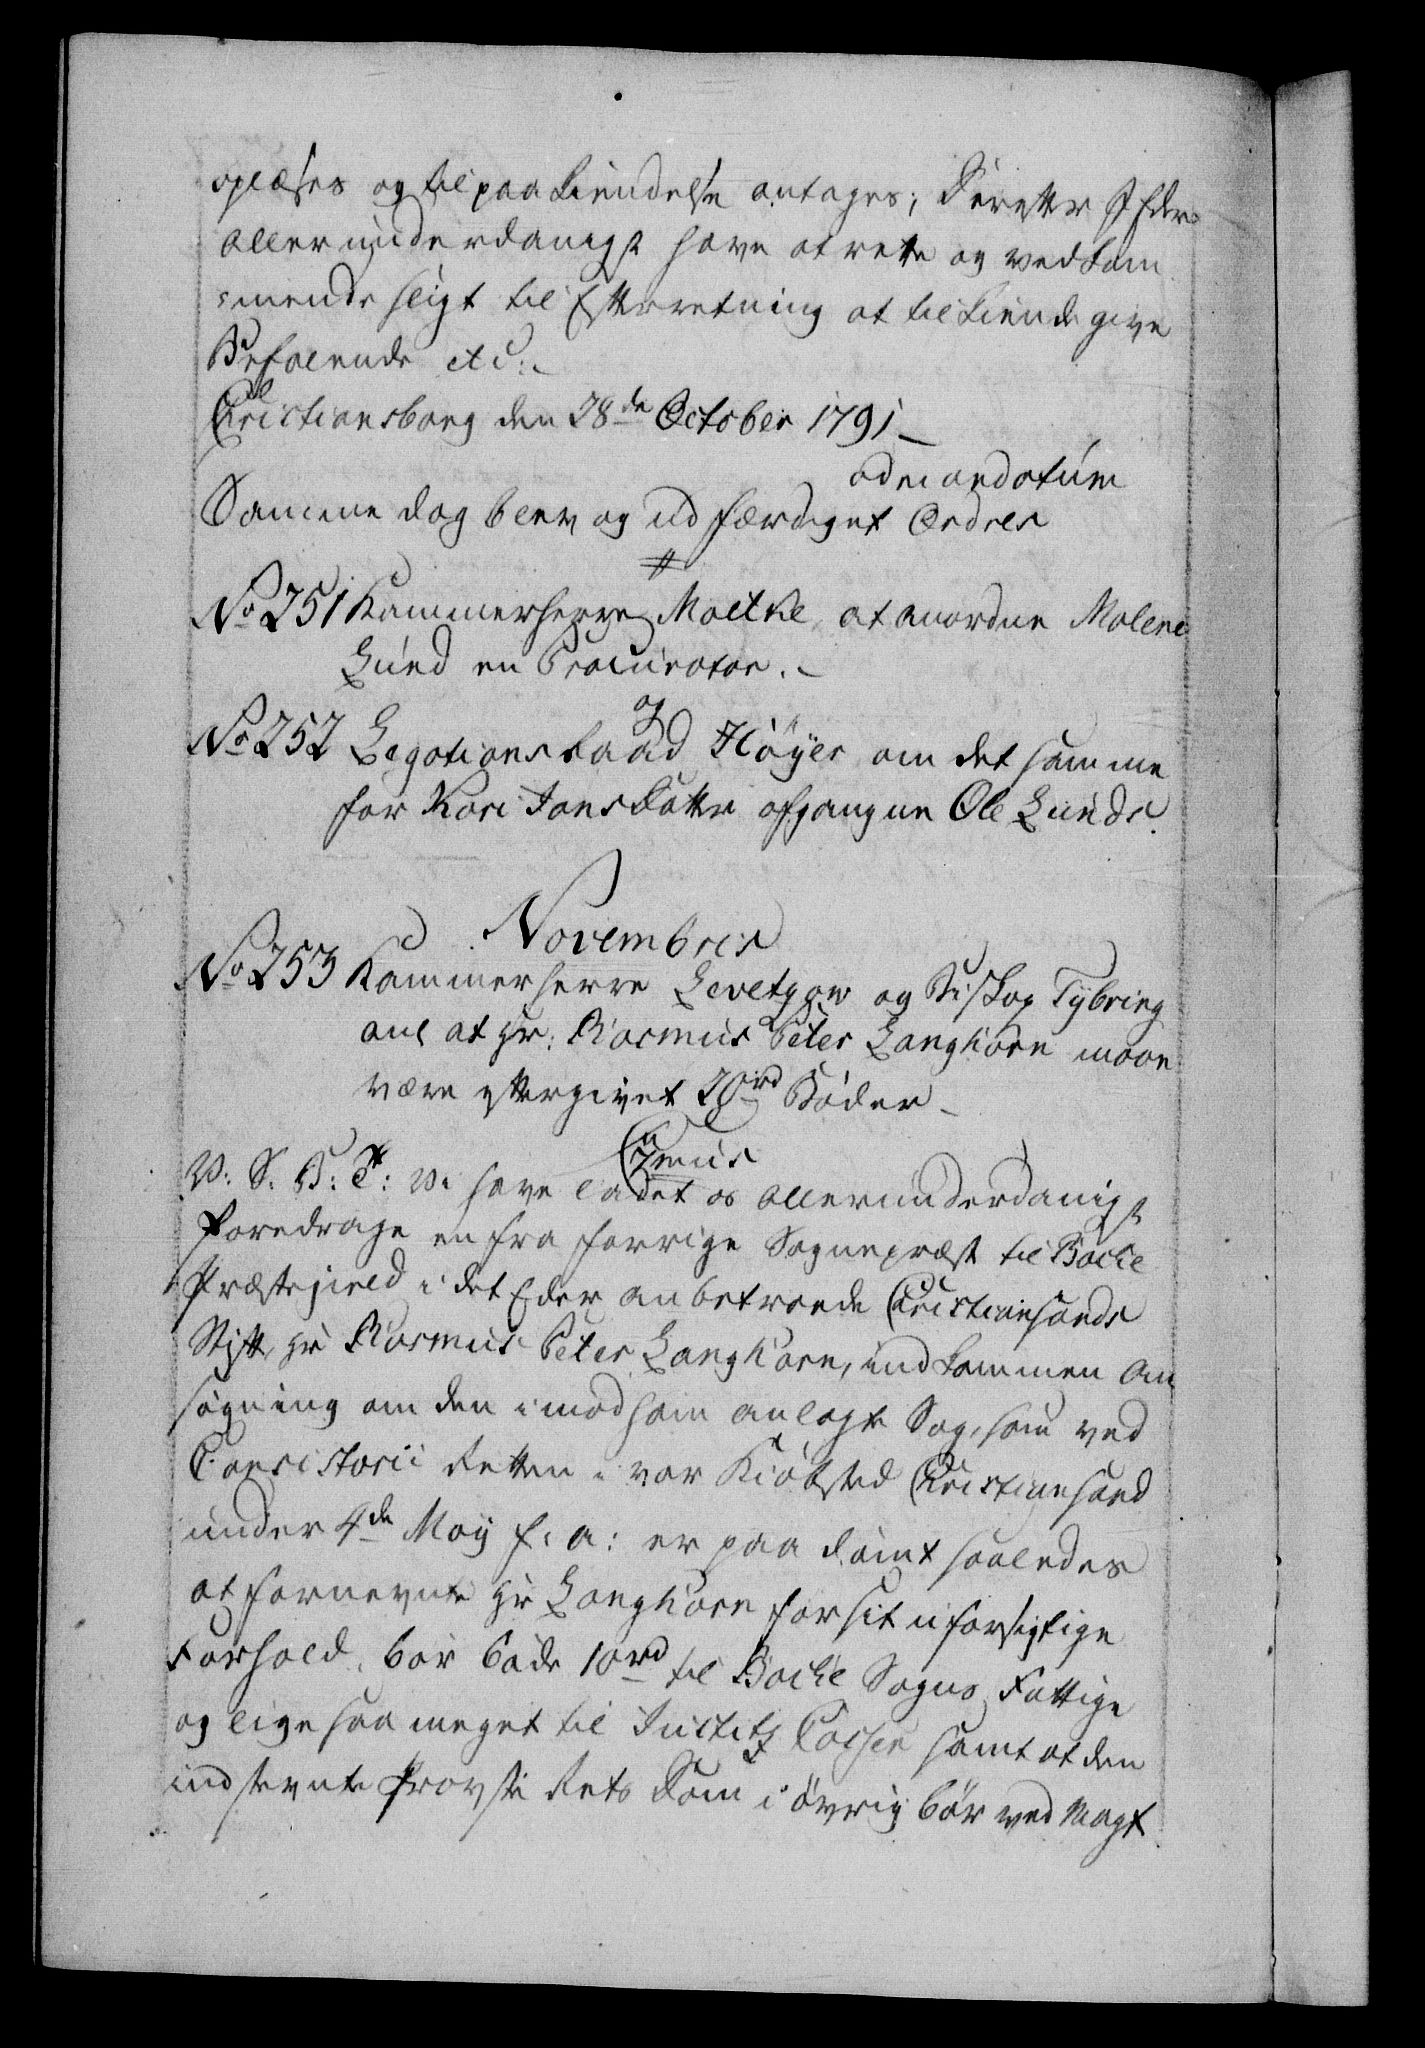 oplæses og til paakiendelse antages; Derefter I Eder
Allerunderdanigst have at rette og vedkom
=mende sligt til Efterretning at tilkiende give
Befalende etc:
Christiansborg den 28de October 1791
ad mandatum
Samme dag blev og udfærdiget Ordres
No 251 Kammerherre Moltke, at anordne Malene
Lund en Procurator.
No 252 Legationsraad Höyer om det samme
for Kari Jansdatter afgangne Ole Lunds.
Novembris
No 253 Kammerherre Levetzow og Biskop Tybring
anl at Hr: Rasmus Peter Langhorn maae
være eftergivet 20rd Bøder
V: S. B: T: Vi have ladet os allerunderdanigst
foredrage en fra forrige Sognepræst til Backe
Præstegield i det Eder anbetroede Christiansands
Stift, Hr Rasmus Peter Langhorn, indkommen An
søgning om den imod ham anlagte Sag, som ved
Consistorii Retten i vor Kiöbsted Christiansand
under 4de May f: a: er paadømt saaledes
at fornevnte Hr Langhorn for sit uforsigtige
Forhold, bør bøde 10rd til Backe Sogns Fattige
og lige saa meget til Justitz Cassen samt at den
indstevnte Provste Rets Dom i øvrig bör ved Magt